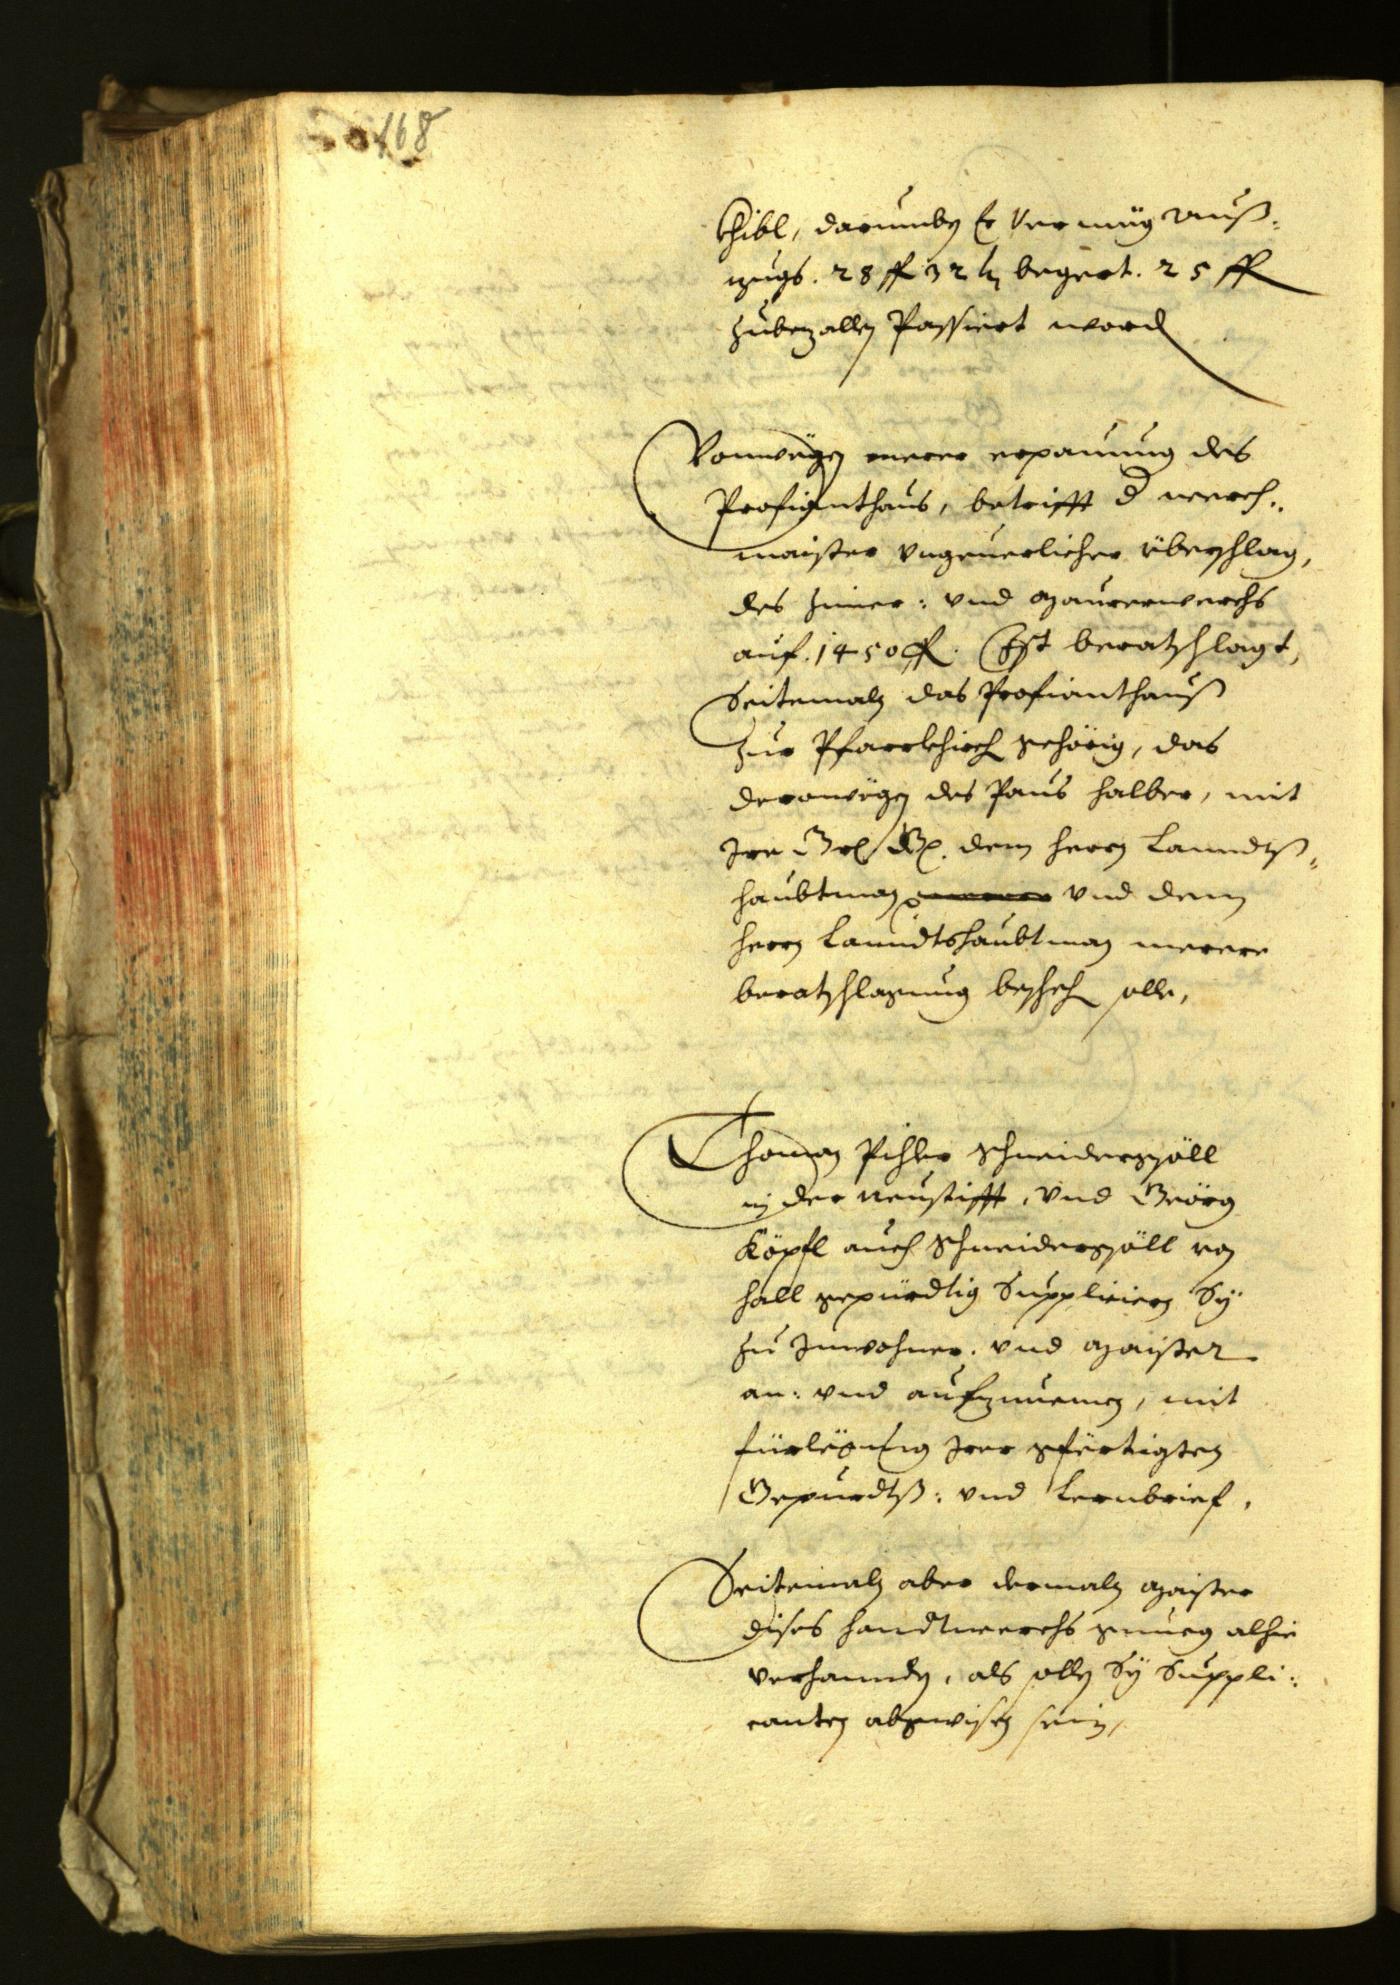 168
khibl, darumben Er Vermüg Auß-
zugs. 28 fl 32 k begert. 25 fl
zubezallen Passiert word
Vonwegen merer erpauung des
Profianthaus, betrifft d werch-
maister vngeuerlicher überschlag,
des Zimer: vnd Maurerwerchs
auf. 1450 fl. Ist beratschlagt,
Seitemaln das Profianthauß
zur Pfarrkhirch gehörig, das
derowegen des Paus halber, mit
Ire dem herrn Lanndtß-
haubtman vnd dem
herrn Lanndtshaubtman merere
beratschlagung besheh solle,
Thoman Pihler Schneidergsöll
in der Neustifft, vnd Geörg
Köpfl auch Schneidergsöll von
Hall gepürdtig Supplicieren Sÿ
zu Inwohner. vnd Maister
an: vnd aufzunemen, mit
fürlegung Irer gfertigten
Gepurdtß: vnd Lernbrief,
Seitemaln aber dermaln Maister
dises handtwerchs genueg alhie
verhannden, als sollen Sÿ Suppli-
canten abgewisen sein,